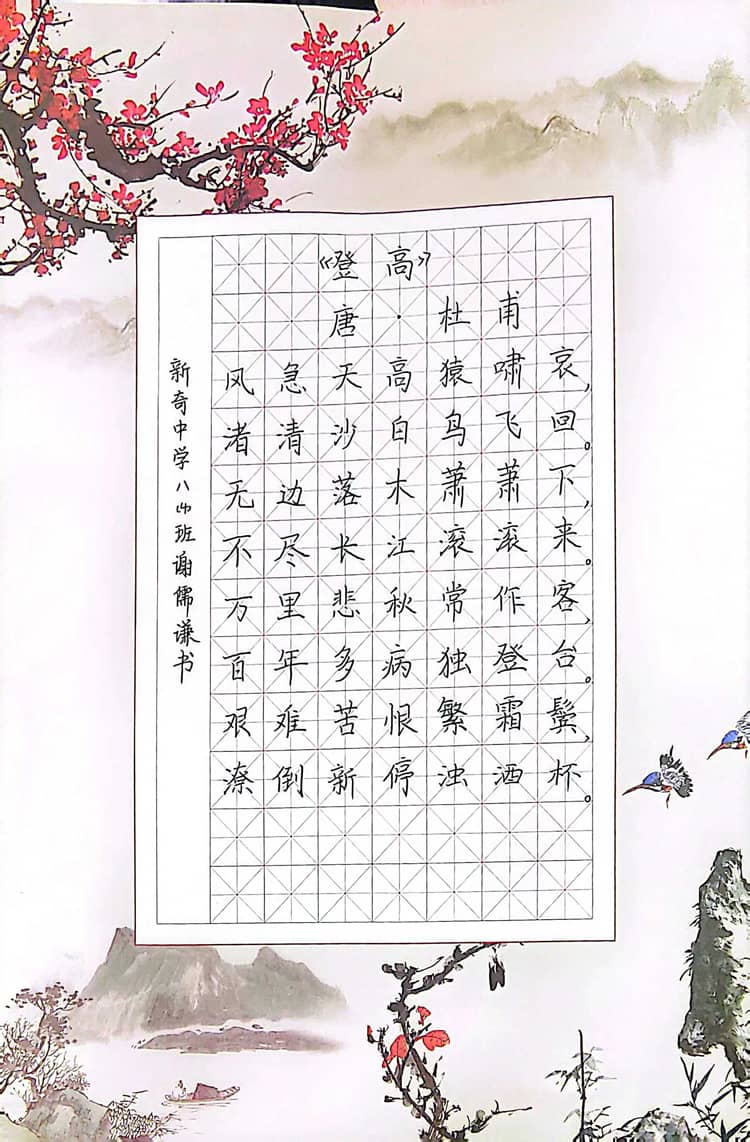 《登高》
唐·杜甫
风急天高猿啸哀，
渚清沙白鸟飞回。
无边落木萧萧下，
不尽长江滚滚来。
万里悲秋常作客，
百年多病独登台。
艰难苦恨繁霜鬓，
潦倒新停浊酒杯。
新奇中学八(4)班谢儒谦书